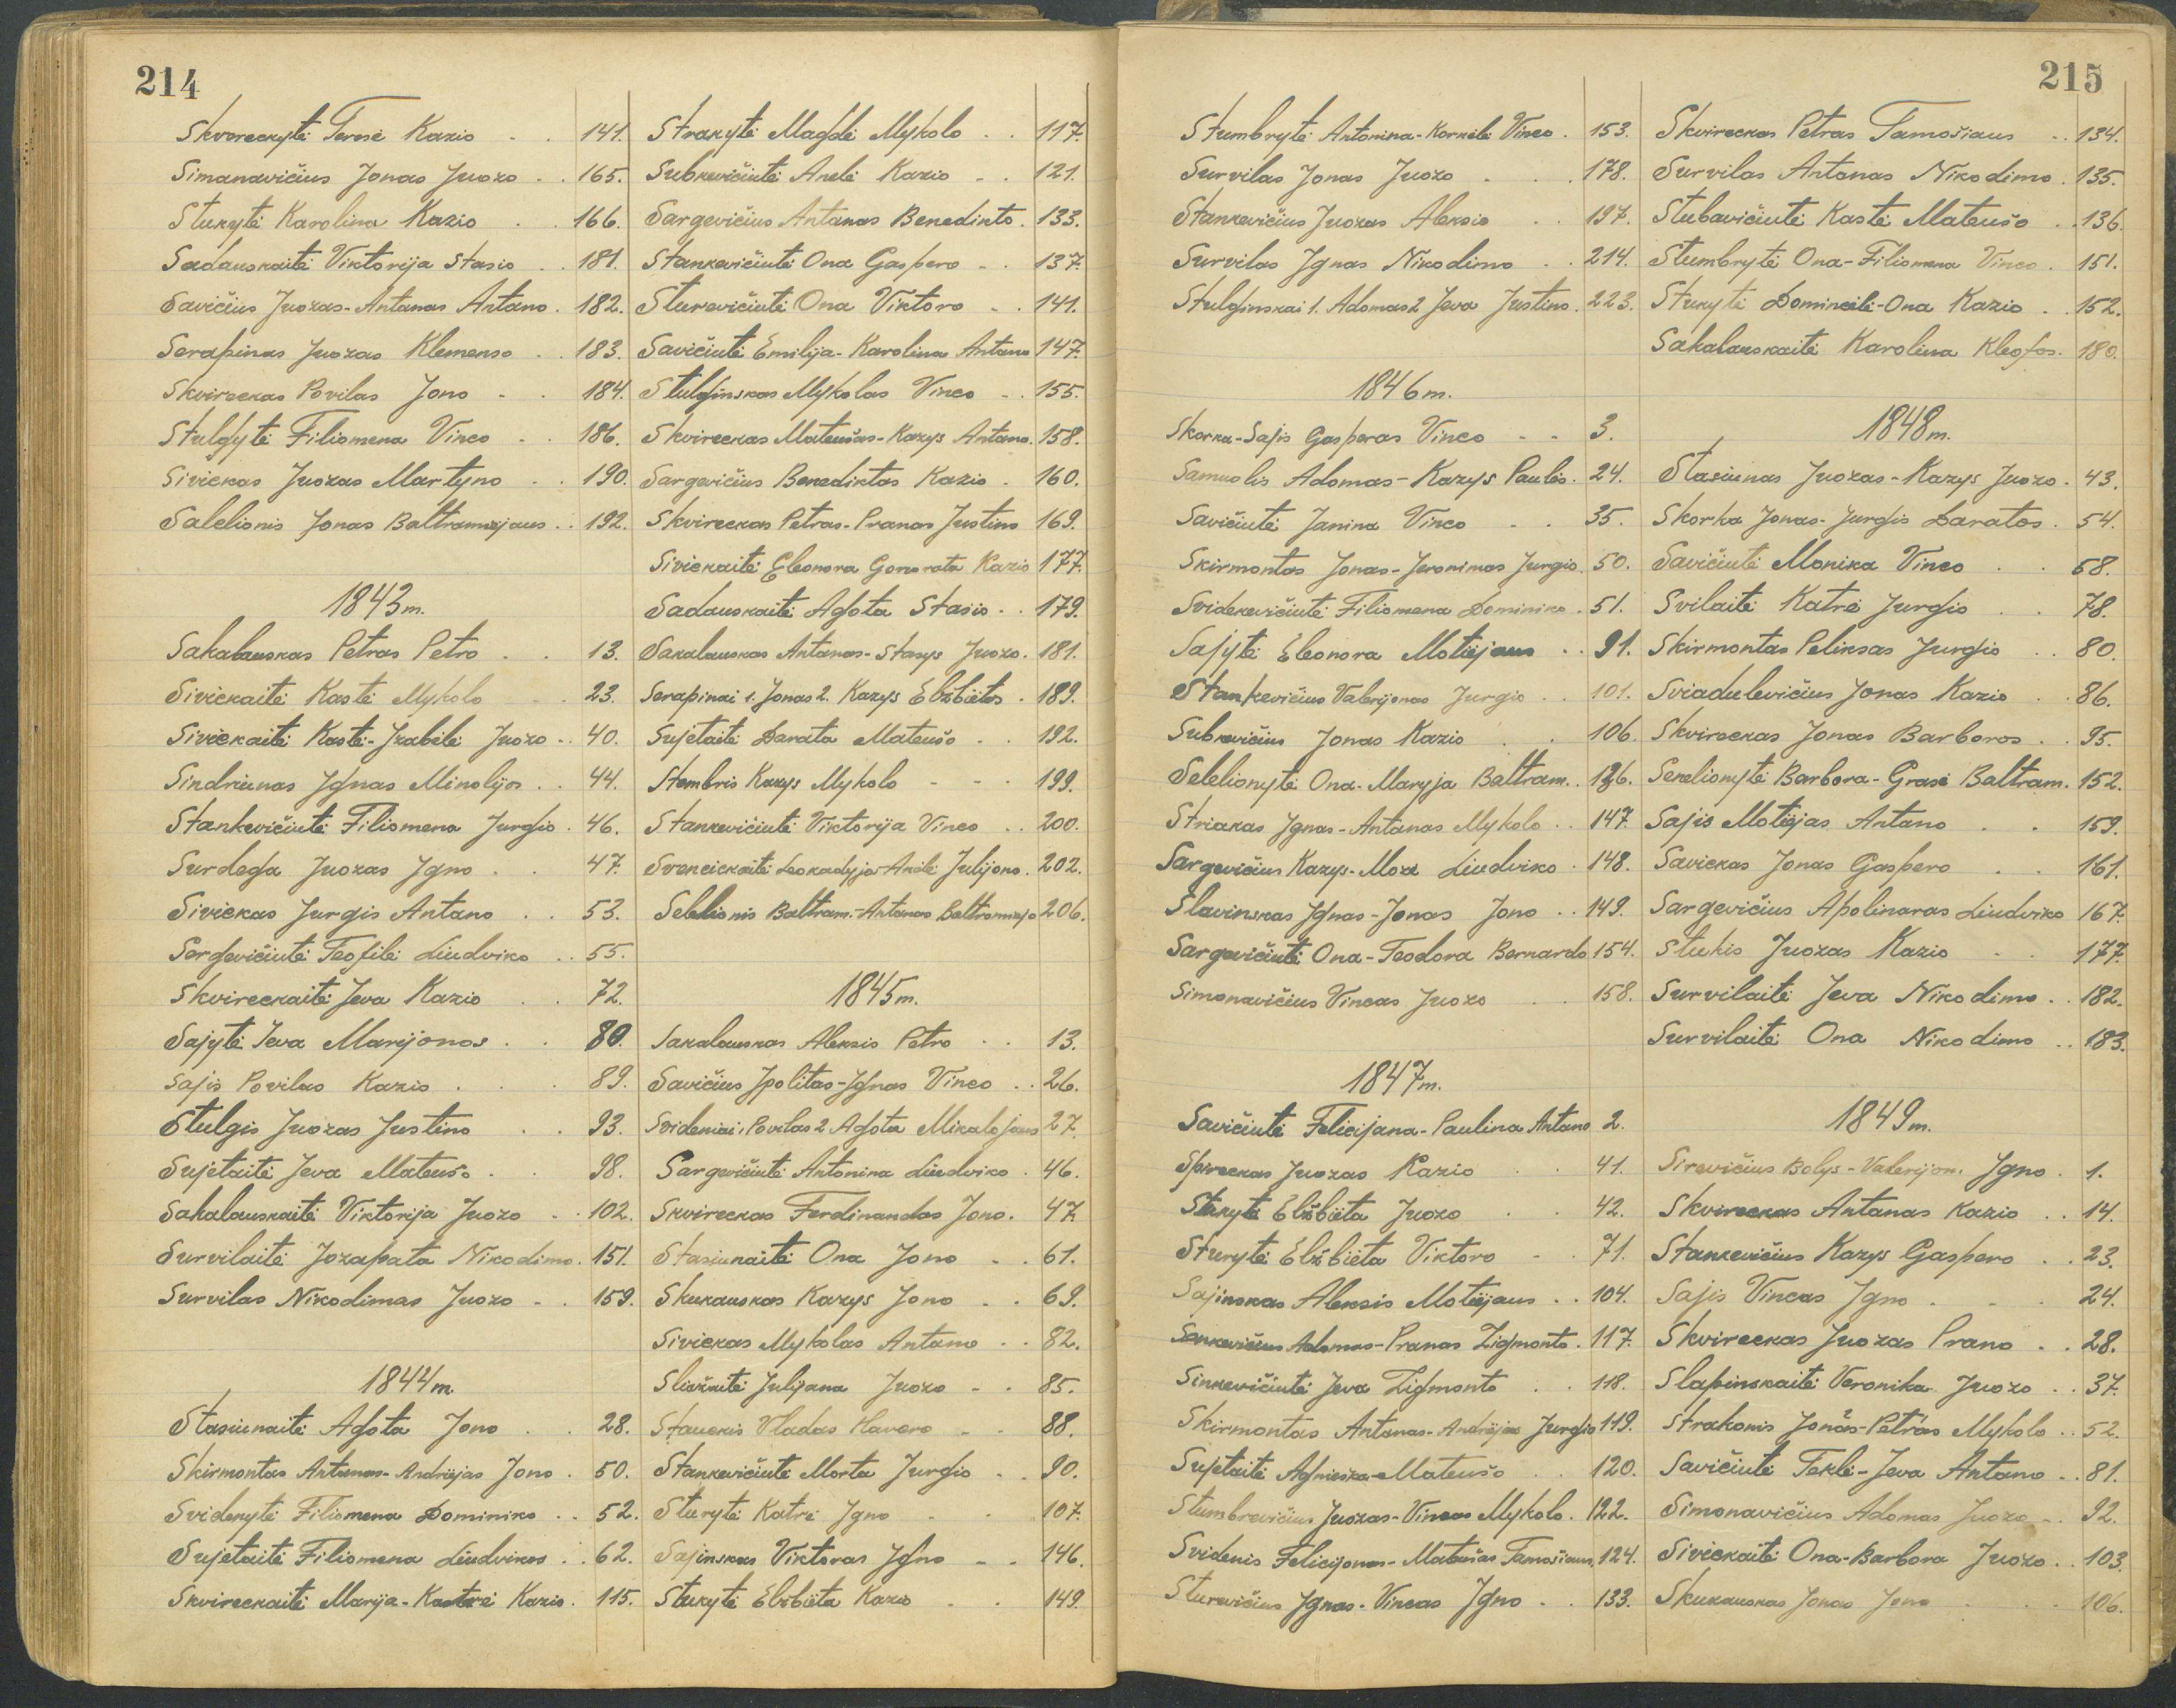 214
Skvoreckytė Teresė Kazio - . 141.
Simanavičius Jonas Juozo . . 165.
Stukytė Karolina Kazio . . 166.
Sadauskaitė Viktorija Stasio . . 181.
Savičius Juozas-Antanas Antano . 182.
Serapinas Juozas Klemenso . . 183.
Skvireckas Povilas Jono - . 184.
Stulgytė Filiomena Vinco - . 186.
Sivickas Juozas Martyno . . 190.
Salelionis Jonas Baltramiejaus . . 192.
1843 m.
Sakalauskas Petras Petro . . 13.
Sivickaitė Kastė Mykolo - . 23.
Sivickaitė Kastė-Izabelė Juozo - . 40.
Sindriunas Ignas Minolijos . . 44.
Stankevičiutė Filiomena Jurgio . 46.
Surdega Juozas Igno . . 47.
Sivickas Jurgis Antano . . 53.
Sergevičiutė Teofilė Liudviko . . 55.
Skvireckaitė Ieva Kazio . . 72.
Sajytė Ieva Marijonos . . 80.
Sajis Povilas Kazio . . . 89.
Stulgis Juozas Justino . . 93.
Sujetaitė Ieva Mateušo . . 98.
Sakalauskaitė Viktorija Juozo - . 102.
Survilaitė Jozapata Nikodimo . 151.
Survilas Nikodimas Juozo - . 159.
1844 m.
Stasiunaitė Agota Jono . . 28.
Skirmontas Antanas-Andriejas Jono . 50.
Svidenytė Filiomena Dominiko . . 52.
Sujetaitė Filiomena Liudvikos . . 62.
Skvireckaitė Marija-Kastrė Kazio . 115.
Strakytė Magdė Mykolo . . 117.
Subkevičiutė Anelė Kazio - . 121.
Sargevičius Antanas Benedikto . 133.
Stankevičiutė Ona Gaspero - . 137.
Sturevičiutė Ona Viktoro - . 141.
Savičiutė Emilija-Karolina Antano 147.
Stulginskas Mykolas Vinco - . 155.
Skvireckas Mateušas-Kazys Antano . 158.
Sargevičius Benediktas Kazio . 160.
Skvireckas Petras-Pranas Justino 169.
Sivickaitė Eleonora Gonorata Kazio 177.
Sadauskaitė Agota Stasio . . 179.
Sakalauskas Antanas-Stasys Juozo . 181.
Serapinai 1. Jonas 2. Kazys Elžbietos . 189.
Sujetaitė Darata Mateušo - . 192.
Stembris Kazys Mykolo - - . 199.
Stankevičiutė Viktorija Vinco . . 200.
Svencickaitė Leokadyja-Anelė Julijono . 202.
Selelionis Baltram.-Antanas Baltramiejo 206.
1845 m.
Sakalauskas Aleksis Petro . . 13.
Savičius Ipolitas-Ignas Vinco . . 26.
Svideniai 1. Povilas 2 Agota Mikalojaus 27.
Sargevičiutė Antonina Liudviko . 46.
Skvireckas Ferdinandas Jono . 47.
Stasiunaitė Ona Jono - . 61.
Skukauskas Kazys Jono . . 69.
Sivickas Mykolas Antano . . 82.
Sliežaitė Julijana Juozo - . 85.
Stauckis Vladas Ksavero - . 88.
Stankevičiutė Morta Jurgio - . 90.
Sturytė Katrė Igno - . 107.
Sajinskas Viktoras Igno - . 146.
Stukytė Elžbieta Kazio - . 149.
215
Stumbrytė Antonina-Kornelė Vinco . 153.
Survilas Jonas Juozo . . . 178.
Stankevičius Juozas Aleksio . . 197.
Survilas Ignas Nikodimo . . 214.
Stulginskai 1. Adomas 2 Ieva Justino . 223.
1846 m.
Skorka-Sajis Gasparas Vinco - - 3.
Samuolis Adomas-Kazys Paulės . 24.
Savičiutė Janina Vinco - . 35.
Skirmontas Jonas-Jeronimas Jurgio . 50.
Sviderevičiutė Filiomena Dominiko . 51.
Sajytė Eleonora Motiejaus . . 91.
Stankevičius Valerijonas Jurgio . . 101.
Subkevičius Jonas Kazio . . 106.
Selelionytė Ona-Maryja Baltram. . 136.
Striakas Ignas-Antanas Mykolo . . 147.
Sargevičius Kazys-Mox Liudviko . 148.
Slavinskas Ignas-Jonas Jono . . 149.
Sargevičiutė Ona-Teodora Bernardo 154.
Simonavičius Vincas Juozo . . 158.
1847 m.
Savičiutė Felicijana-Paulina Antano 2.
Spireckas Juozas Kazio . . 41.
Stukytė Elžbieta Juozo . . 42.
Sturytė Elžbieta Viktoro - . 71.
Sajinskas Aleksis Motiejaus . . 104.
Senkevičius Adomas-Pranas Zigmonto . 117.
Sinkevičiutė Ieva Zigmonto . . 118.
Skirmontas Antanas-Andriejas Jurgio 119.
Sujetaitė Agnieška-Mateušo . . 120.
Stumbrevičius Juozas-Vincas Mykolo . 122.
Svidenis Felicijonas-Mateušas Tamošiaus 124.
Sturevičius Ignas-Vincas Igno . . 133.
Skvireckas Petras Tamošiaus . . 134.
Survilas Antanas Nikodimo . 135.
Stubavičiutė Kastė Mateušo . . 136.
Stumbrytė Ona-Filiomena Vinco . 151.
Stukytė Domincėlė-Ona Kazio . . 152.
Sakalauskaitė Karolina Kleofos . 180.
1848 m.
Stasiunas Juozas-Kazys Juozo . 43.
Skorka Jonas-Jurgis Daratos . 54.
Savičiutė Monika Vinco . . 68.
Svilaitė Katrė Jurgio . . 78.
Skirmontas Peliksas Jurgio . . 80.
Sviadulevičius Jonas Kazio . . 86.
Skvireckas Jonas Barboros . . 95.
Serelionytė Barbora-Grasė Baltram. 152.
Sajis Motiejas Antano . . 159.
Savickas Jonas Gaspero . . 161.
Sargevičius Apolinaras Liudviko 167.
Stukis Juozas Kazio . . 177.
Survilaitė Ieva Nikodimo . . 182.
Survilaitė Ona Nikodimo . . 183.
1849 m.
Sirevičius Bolys-Valerijon. Igno . 1.
Skvireckas Antanas Kazio . . 14.
Stankevičius Kazys Gaspero . . 23.
Sajis Vincas Igno . - . 24.
Skvireckas Juozas Prano . . 28.
Slapinskaitė Veronika Juozo . . 37.
Strakonis Jonas-Petras Mykolo . . 52.
Savičiutė Teklė-Ieva Antano - . 81.
Simonavičius Adomas Juozo - . 92.
Sivickaitė Ona-Barbora Juozo . . 103.
Skukauskas Jonas Jono . . . 106.